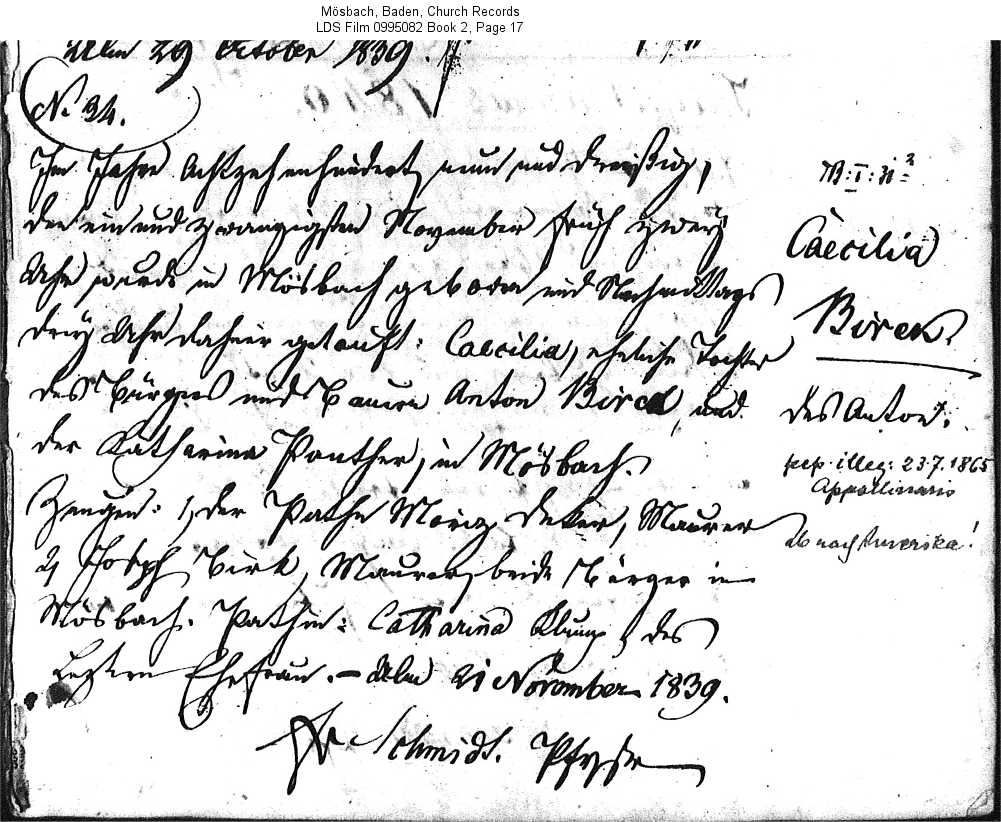 Mösbach, Baden, Church Records
LDS Film 0995082 Book 2, Page 17
Ulm 29 October 1839.
No. 34.
Im Jahre Achtzehenhundert, neun und dreißig,
den ein und zwanzigsten November früh zwey
Uhr wurde in Mösbach geboren und Nachmittags
drey Uhr dahier getauft: Caecilia, eheliche Tochter
des Bürgers und Bauern Anton Birck, und
der Katharina Panther, in Mösbach.
Zeugen: 1, der Pathe Moriz Deker, Maurer
2, Joseph Birk, Maurer, beide Bürger in
Mösbach. Pathin: Catharina, des
Lezten Ehefrau. – Ulm 21 November 1839.
Schmidt. Pfr
Caecilia
Birck.
des Anton.
pep. illeg: 23.7.1865
Appollinaris
Ab nach Amerika!